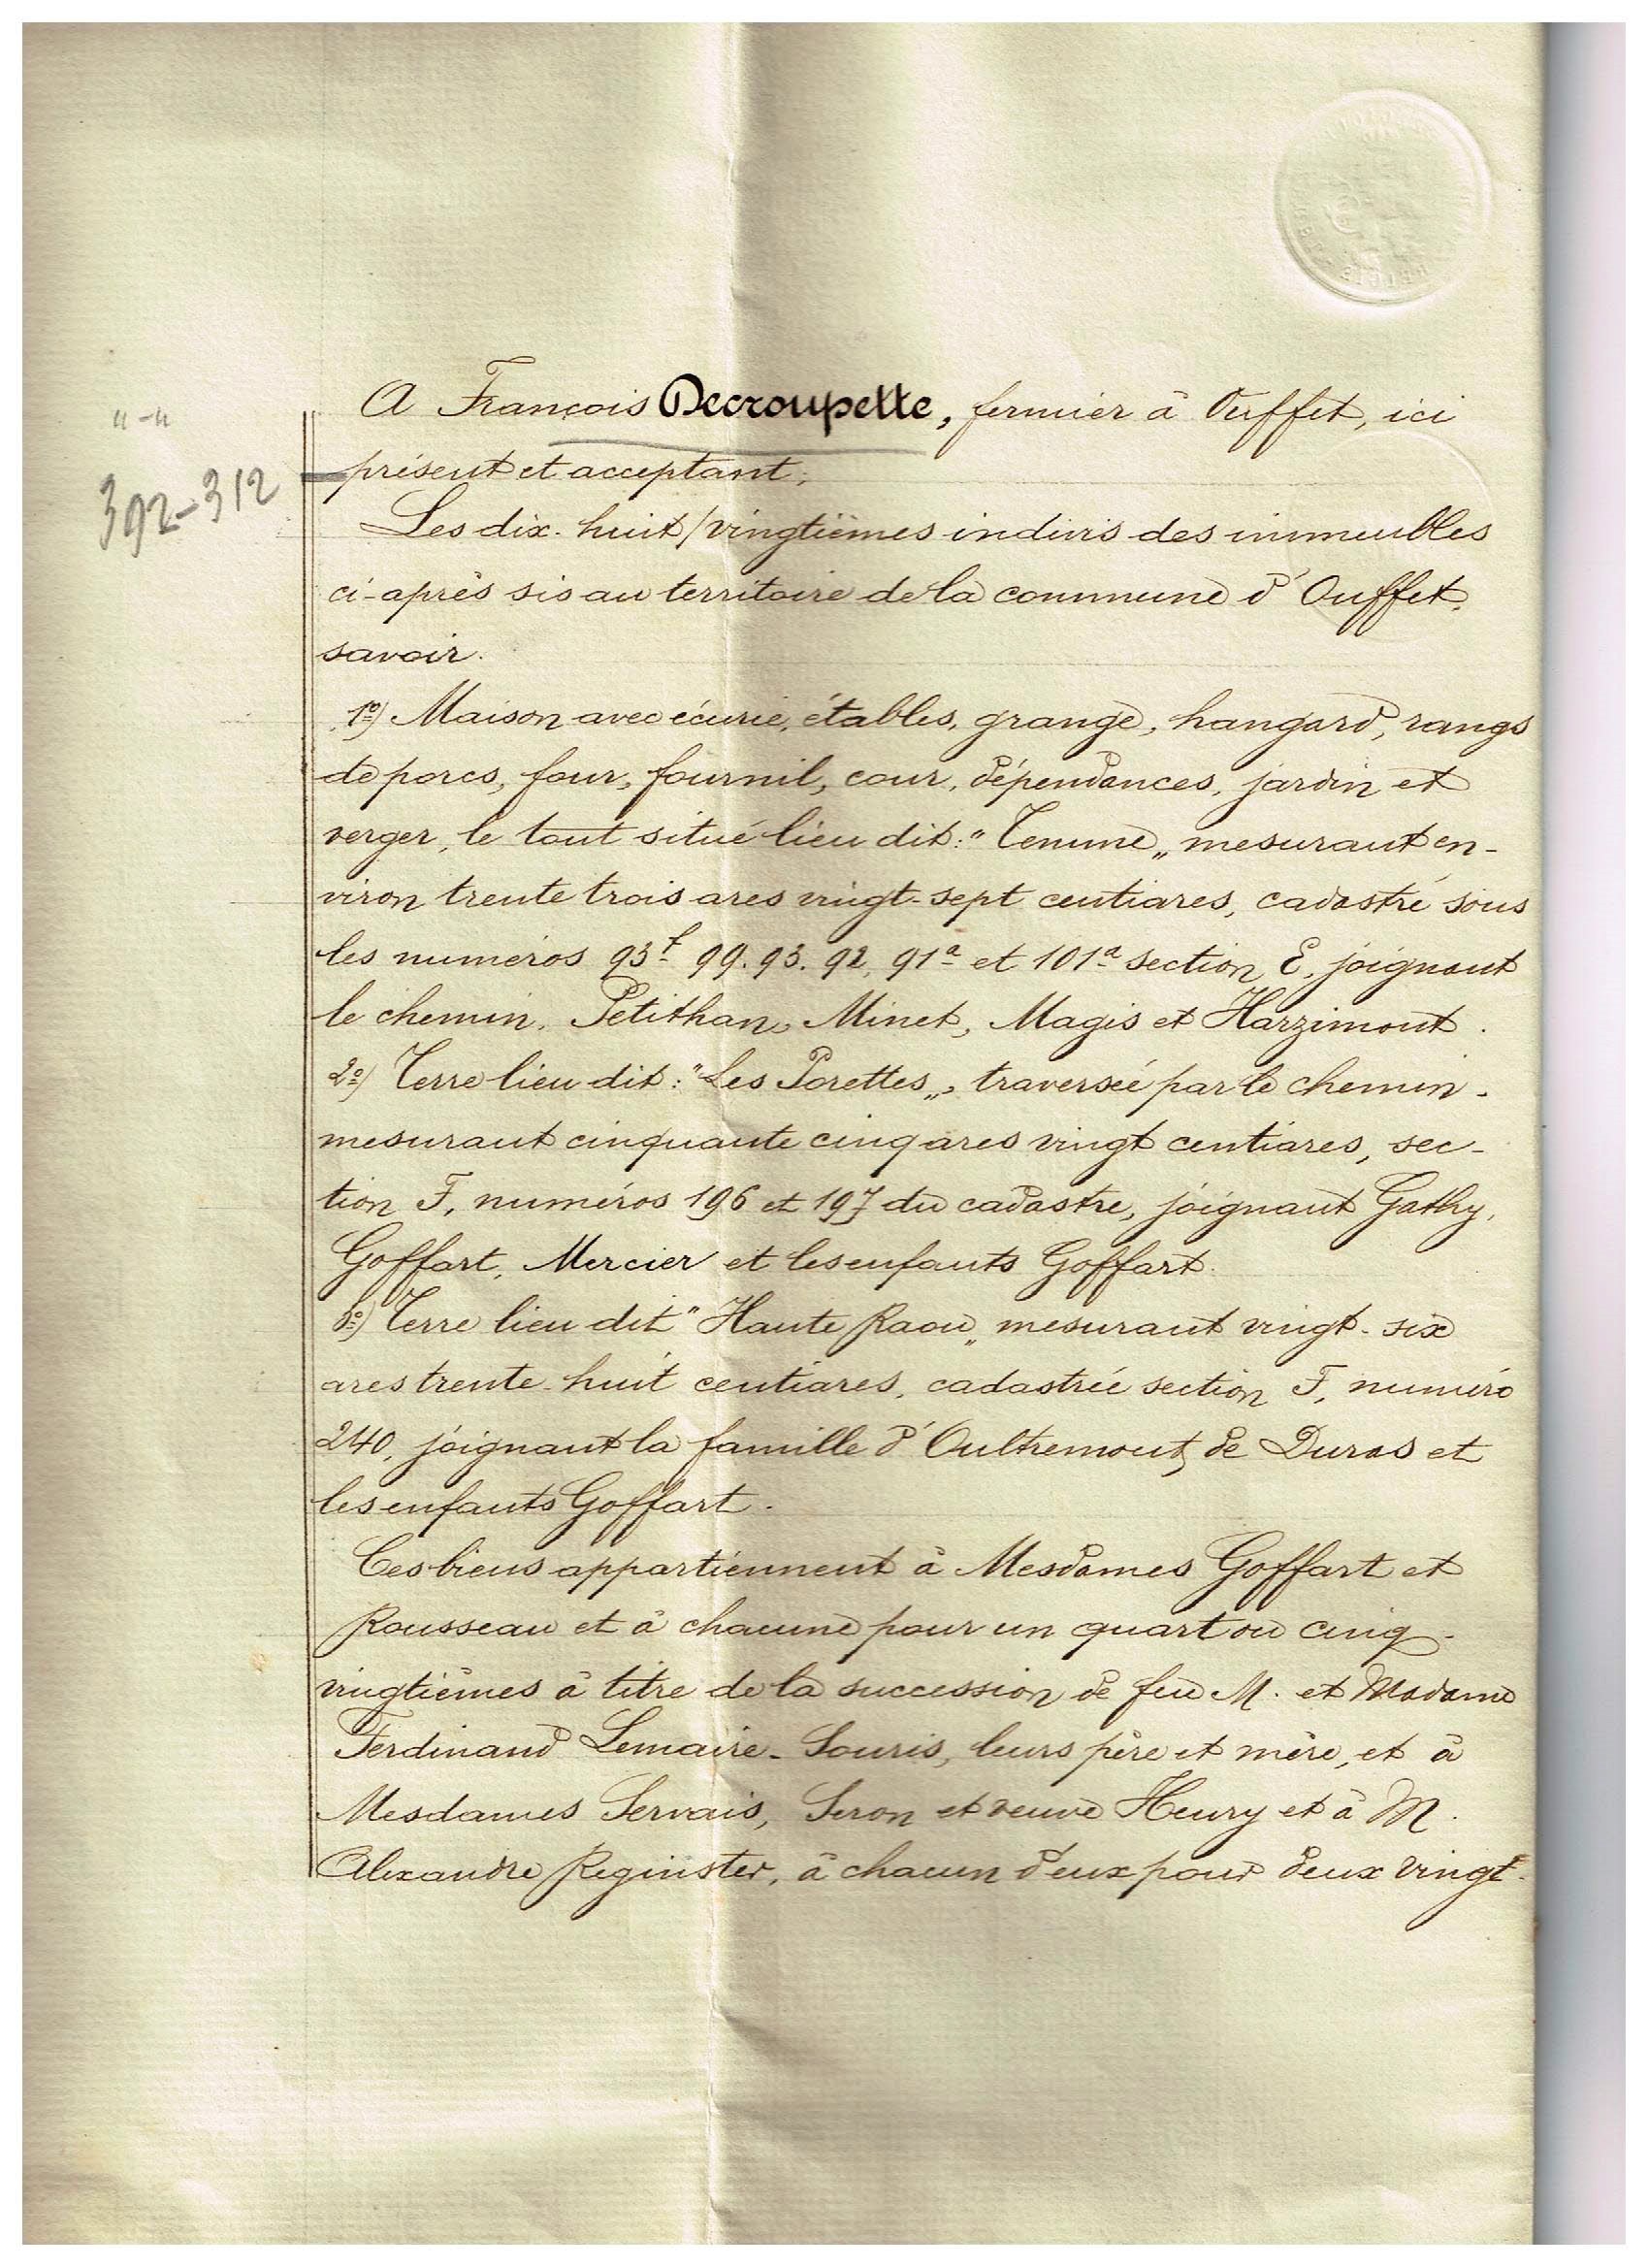 A François Decroupette, fermier à Ouffet, ici
" - "
392-312
présent et acceptant;
Les dix-huit/vingtièmes indivis des immeubles
ci-après sis au territoire de la commune d'Ouffet,
savoir.
1º) Maison avec écurie, étables, grange, hangard, rangs
de porcs, four, fournil, cour, dépendances, jardin et
verger, le tout situé lieu dit: "Temme" mesurant en-
viron trente trois ares vingt-sept centiares, cadastré sous
les numéros 93f 99. 93. 92, 91a et 101a section E, joignant
le chemin, Petithan, Minet, Magis et Harzimont.
2º) Terre lieu dit: "Les Porettes", traversée par le chemin.
mesurant cinquante cinq ares vingt centiares, sec-
tion F, numéros 196 et 197 du cadastre, joignant Gathy,
Goffart, Mercier et les enfants Goffart.
3º) Terre lieu dit "Haute Raou" mesurant vingt-six
ares trente-huit centiares, cadastrée section F, numéro
240, joignant la famille d'Oultremont, de Duras et
les enfants Goffart.
Ces biens appartiennent à Mesdames Goffart et
Rousseau et à chacune pour un quart ou cinq-
vingtièmes à titre de la succession de feu M. et Madame
Ferdinand Lemaire-Souris, leurs père et mère, et à
Mesdames Servais, Seron et veuve Henry et à M.
Alexandre Reginster, à chacun d'eux pour deux vingt-